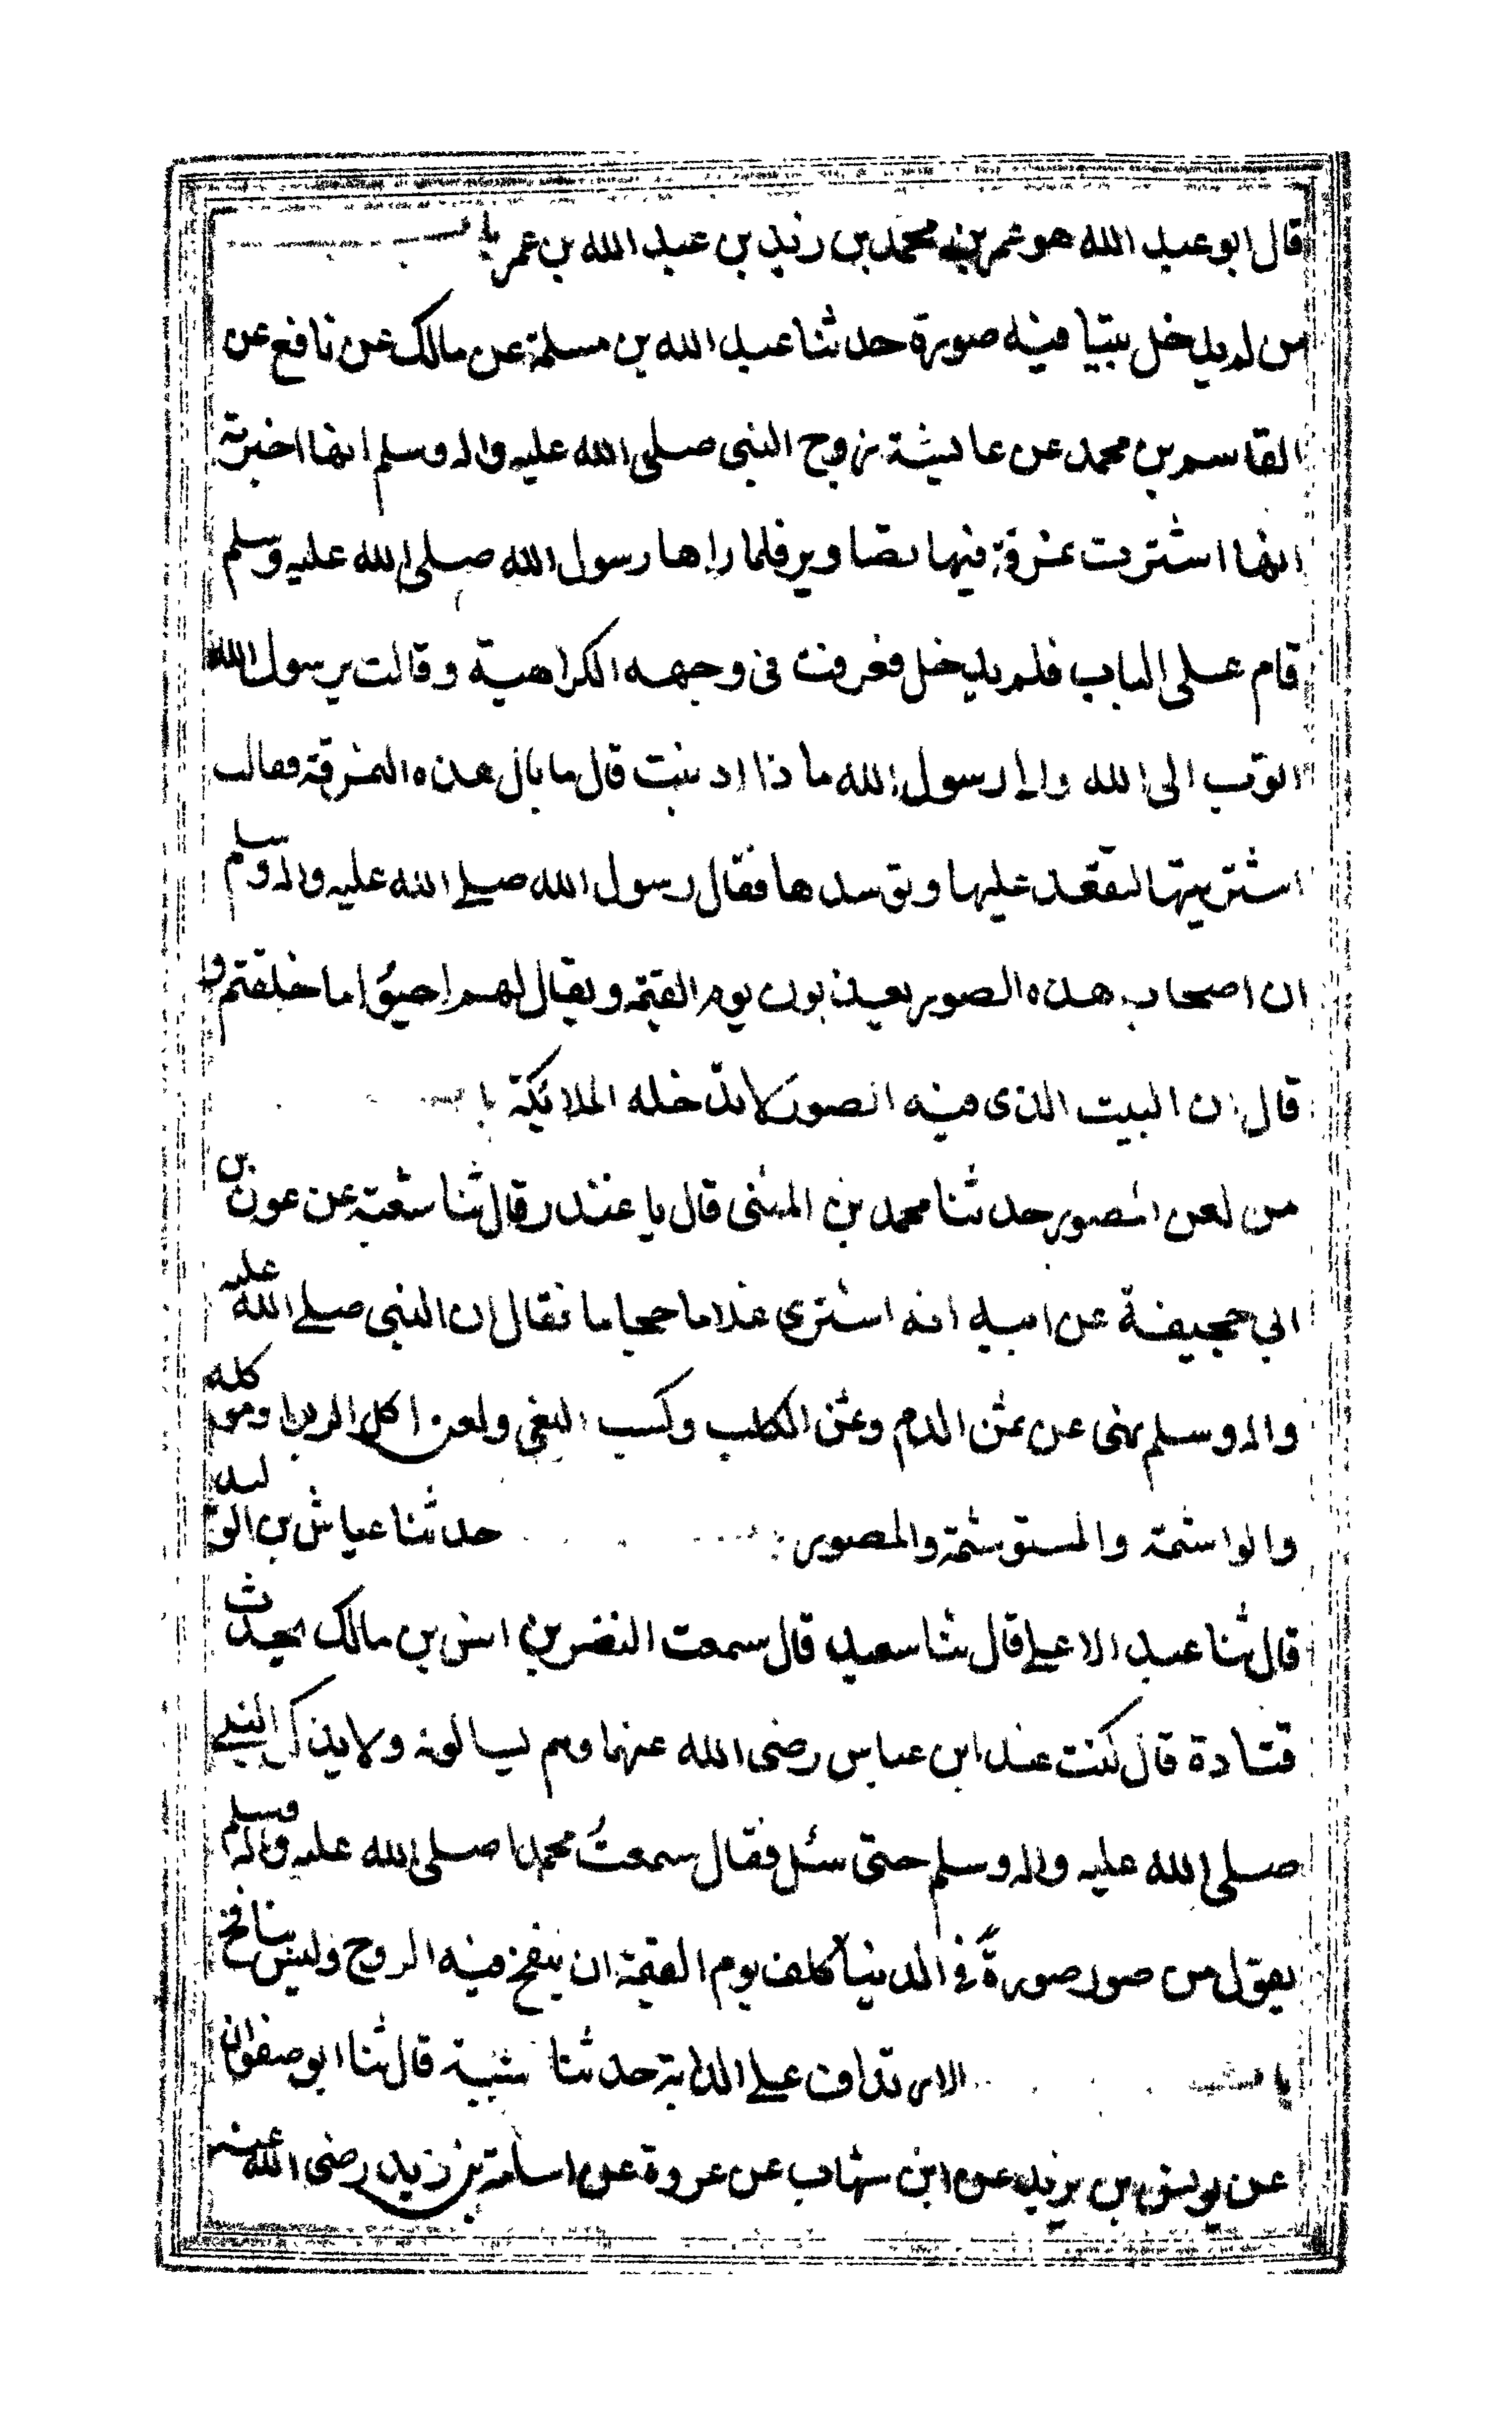 قال ابو عبد الله هو عمر بن محمد بن زيد بن عبد الله بن عمر باب
من لم يدخل بيتا فيه صورة حدثنا عبد الله بن مسلمة عن مالك عن نافع عن
القاسم بن محمد عن عايشة زوج النبي صلى الله عليه واله وسلم انها اخبرته
انها اشترت نمرقة فيها تصاوير فلما راها رسول الله صلى الله عليه وسلم
قام على الباب فلم يدخل فعرفت في وجهه الكراهية وقالت يرسول الله
اتوب الى الله والى رسول الله ماذا اذنبت قال ما بال هذه النمرقة فقالت
اشتريتها لتقعد عليها وتوسدها فقال رسول الله صلے الله عليه واله وسلم
ان اصحاب هذه الصور يعذبون يوم القيمة ويقال لهم احيوا ما خلقتم و
قال ان البيت الذي فيه الصور لا تدخله الملائكة باب
من لعن المصور حدثنا محمد بن المثنى قال يا غندر قال ثنا شعبة عن عون بن
ابي جحيفة عن ابيه انه اشترى غلاما حجاما فقال ان النبي صلے الله عليه
واله وسلم نهى عن ثمن الدم وثمن الكلب وكسب البغي ولعن اكل الربا وموكله
والواشمة والمستوشمة والمصور حدثنا عياش بن الوليد
قال ثنا عبد الاعلے قال ثنا سعيد قال سمعت النضر بن انس بن مالك يحدث
قتادة قال كنت عند ابن عباس رضى الله عنهما وهم يسالونه ولا يذكر النبي
صلى الله عليه واله وسلم حتى سئل فقال سمعت محمدا صلى الله عليه واله وسلم
يقول من صور صورة في الدنيا كلف يوم القيمة ان ينفخ فيه الروح وليس بنافخ
باب الارتداف علے الدابة حدثنا قتيبة قال ثنا ابو صفوان
عن يونس بن يزيد عن ابن شهاب عن عروة عن اسامة بن زيد رضى الله عنه